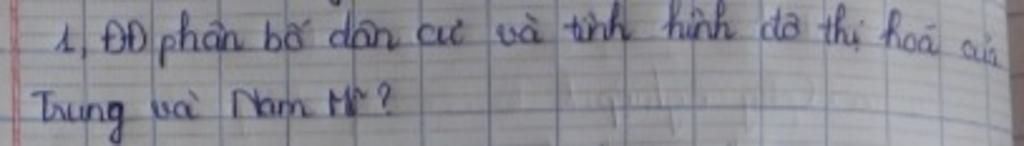 1, ĐĐ phân bố dân cư và tình hình đô thị hoá của
Trung và Nam Mĩ?